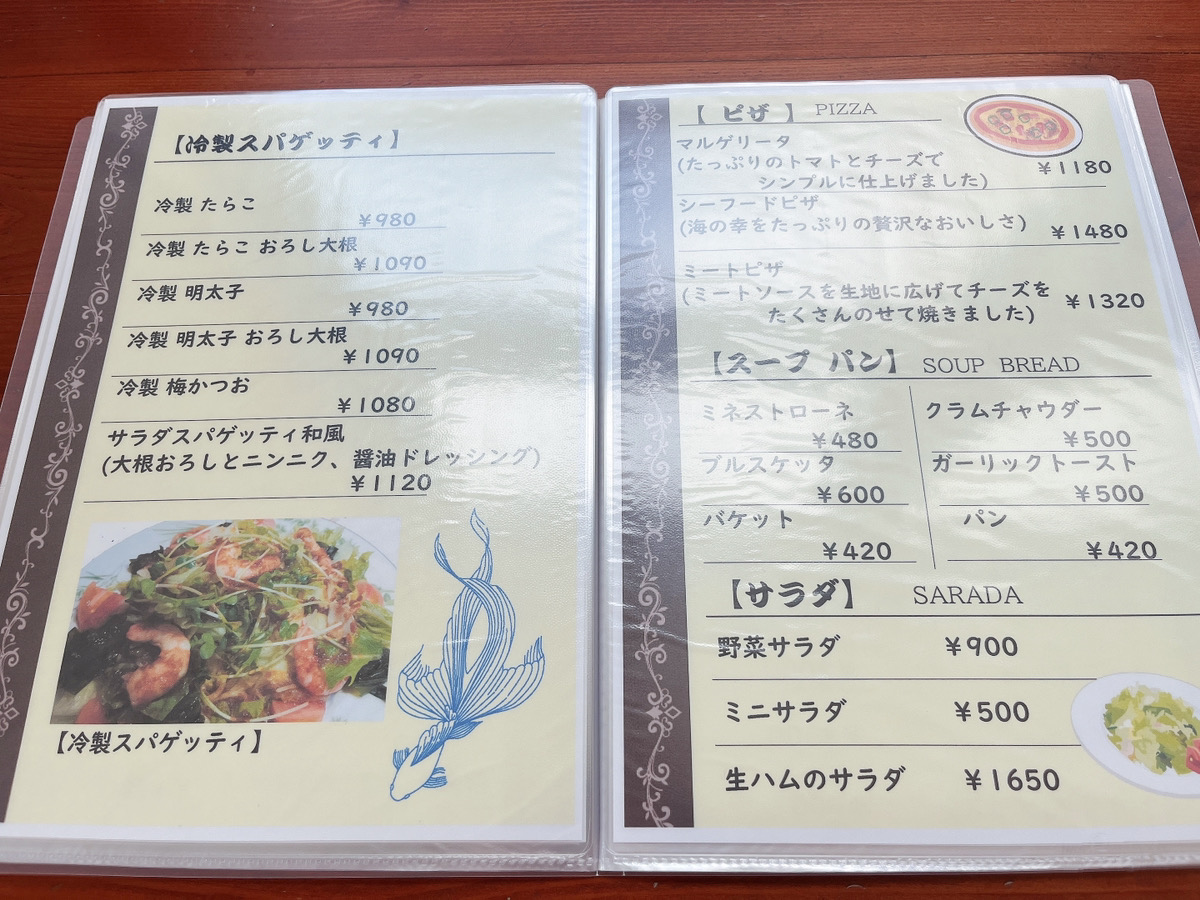 【冷製スパゲッティ】
冷製 たらこ
¥980
冷製 たらこ おろし大根
¥1090
冷製 明太子
¥980
冷製 明太子 おろし大根
¥1090
冷製 梅かつお
¥1080
サラダスパゲッティ和風
(大根おろしとニンニク、醤油ドレッシング)
¥1120
【冷製スパゲッティ】
【 ピザ 】 PIZZA
マルゲリータ
(たっぷりのトマトとチーズで
シンプルに仕上げました) ¥1180
シーフードピザ
(海の幸をたっぷりの贅沢なおいしさ) ¥1480
ミートピザ
(ミートソースを生地に広げてチーズを
たくさんのせて焼きました) ¥1320
【スープ パン】 SOUP BREAD
ミネストローネ
¥480
クラムチャウダー
¥500
ブルスケッタ
¥600
ガーリックトースト
¥500
バケット
¥420
パン
¥420
【サラダ】 SARADA
野菜サラダ ¥900
ミニサラダ ¥500
生ハムのサラダ ¥1650